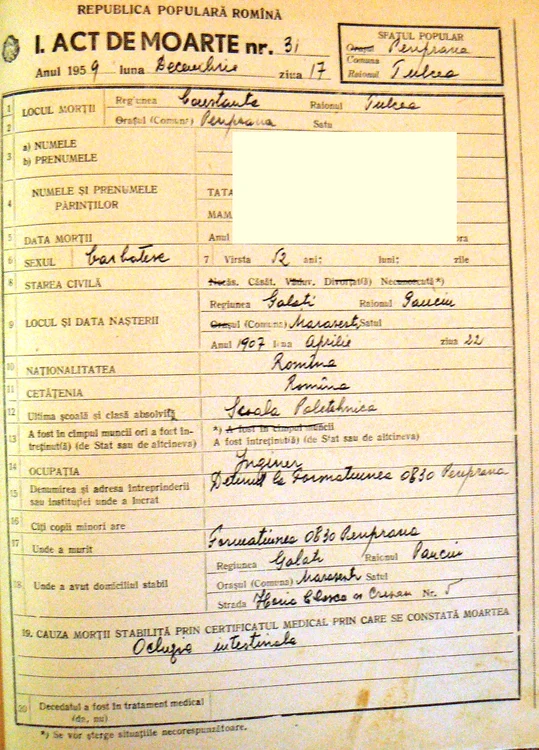 REPUBLICA POPULARĂ ROMÎNĂ
I. ACT DE MOARTE nr. 31
Anul 1959 luna Decembrie ziua 17
SFATUL POPULAR
Orașul Periprava
Comuna
Raionul Tulcea
1 LOCUL MORȚII Regiunea Constanta Raionul Tulcea
2 Orașul (Comuna) Periprava Satu
3 a) NUMELE
b) PRENUMELE
4 NUMELE ȘI PRENUMELE PĂRINȚILOR TATA
MAM
5 DATA MORȚII Anul ora
6 SEXUL barbatesc 7 Vîrsta 52 ani: luni: zile
8 STAREA CIVILĂ Necăs. Căsăt. Văduv. Divorțat(ă) Necunoscută*)
9 LOCUL ȘI DATA NAȘTERII Regiunea Galati Raionul Panciu
Orașul (Comuna) Marasesti Satul
Anul 1907 luna Aprilie ziua 22
10 NAȚIONALITATEA Romina
11 CETĂȚENIA Romîna
12 Ultima școală și clasă absolvită Scoala Politehnica
13 A fost în cîmpul muncii ori a fost întreținut(ă) (de Stat sau de altcineva) *) A fost în cîmpul muncii
A fost întreținut(ă) (de Stat sau de altcineva)
14 OCUPAȚIA Inginer
15 Denumirea și adresa întreprinderii sau instituției unde a lucrat Detinut la Formatiunea 0830 Periprava
16 Cîți copii minori are
17 Unde a murit Formatiunea 0830 Periprava
18. Unde a avut domiciliul stabil Regiunea Galati Raionul Panciu
Orașul (Comuna) Marasesti Satul
Strada Horia Closca si Crisan Nr. 5
19. CAUZA MORȚII STABILITĂ PRIN CERTIFICATUL MEDICAL PRIN CARE SE CONSTATĂ MOARTEA
intestinala
20 Decedatul a fost în tratament medical
(da, nu)
*) Se vor șterge situațiile necorespunzătoare.